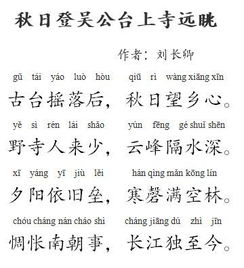 秋日登吴公台上寺远眺
作者：刘长卿
gǔ tái yáo luò hòu qiū rì wàng xiāng xīn
古台摇落后，秋日望乡心。
yě sì rén lái shǎo yún fēng gé shuǐ shēn
野寺人来少，云峰隔水深。
xī yáng yī jiù lěi hán qìng mǎn kōng lín
夕阳依旧垒，寒磬满空林。
chóu chàng nán cháo shì cháng jiāng dú zhì jīn
惆怅南朝事，长江独至今。